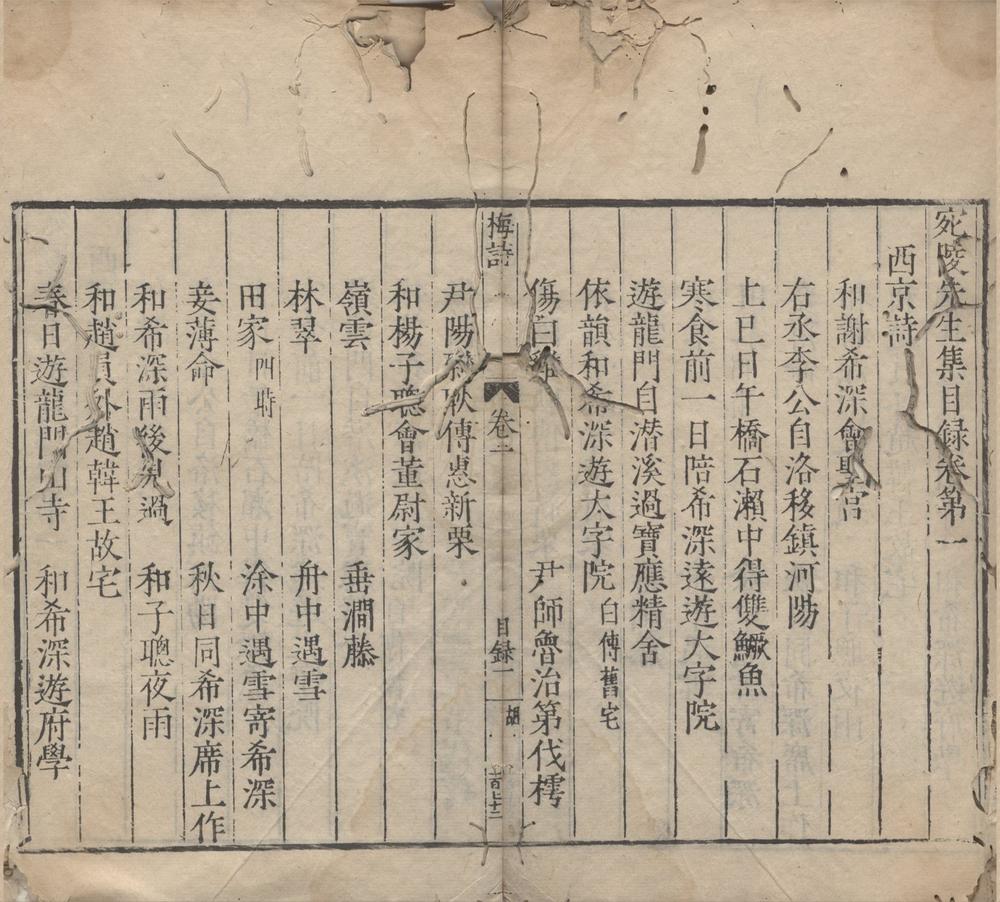 宛陵先生集目録卷第一
西京詩
和謝希深會聖宮
右丞李公自洛移鎮河陽
上巳日午橋石瀨中得雙鱖魚
寒食前一日陪希深遠遊大字院
遊龍門自潛溪過寶應精舍
依韻和希深遊大字院 白傅舊宅
傷白雞 尹師魯治第伐樗
梅詩 卷一 目録一 胡 一百七十二
尹陽尉耿傳惠新栗
和楊子聰會董尉家
嶺雲 垂澗藤
林翠 舟中遇雪
田家 四時 涂中遇雪寄希深
妾薄命 秋日同希深席上作
和希深雨後見過 和子聰夜雨
和趙員外趙韓王故宅
春日遊龍門山寺 和希深遊府學